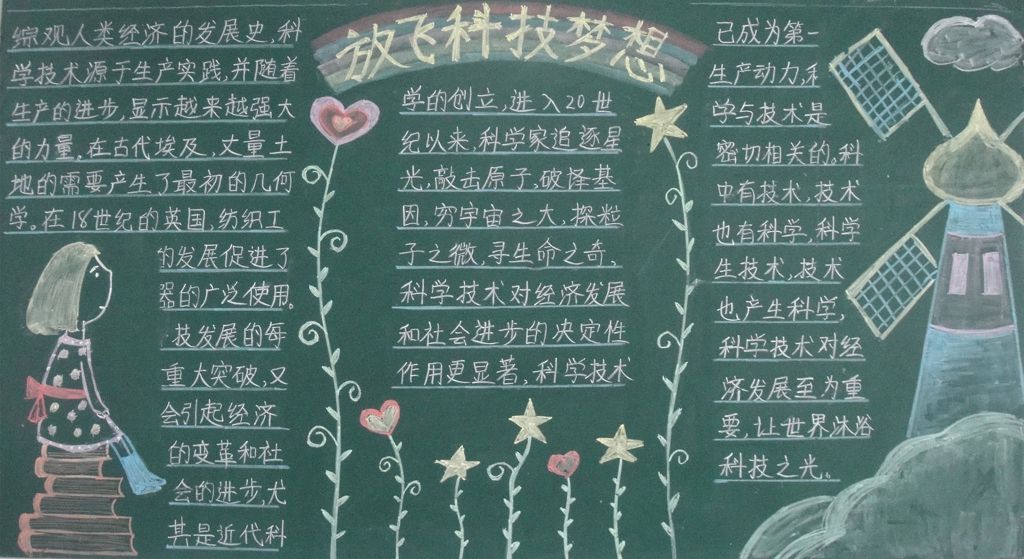 放飞科技梦想
综观人类经济的发展史,科
学技术源于生产实践,并随着
生产的进步,显示越来越强大
的力量。在古代埃及,丈量土
地的需要产生了最初的几何
学。在18世纪的英国,纺织工
的发展促进了
器的广泛使用。
技发展的每
重大突破,又
会引起经济
的变革和社
会的进步,尤
其是近代科
学的创立,进入20世
纪以来,科学家追逐星
光,敲击原子,破译基
因,穷宇宙之大,探粒
子之微,寻生命之奇、
科学技术对经济发展
和社会进步的决定性
作用更显著,科学技术
已成为第一
生产动力,
学与技术是
密切相关的。科
中有技术,技术
也有科学,科学
生技术,技术
也产生科学,
科学技术对经
济发展至为重
要,让世界沐浴
科技之光。